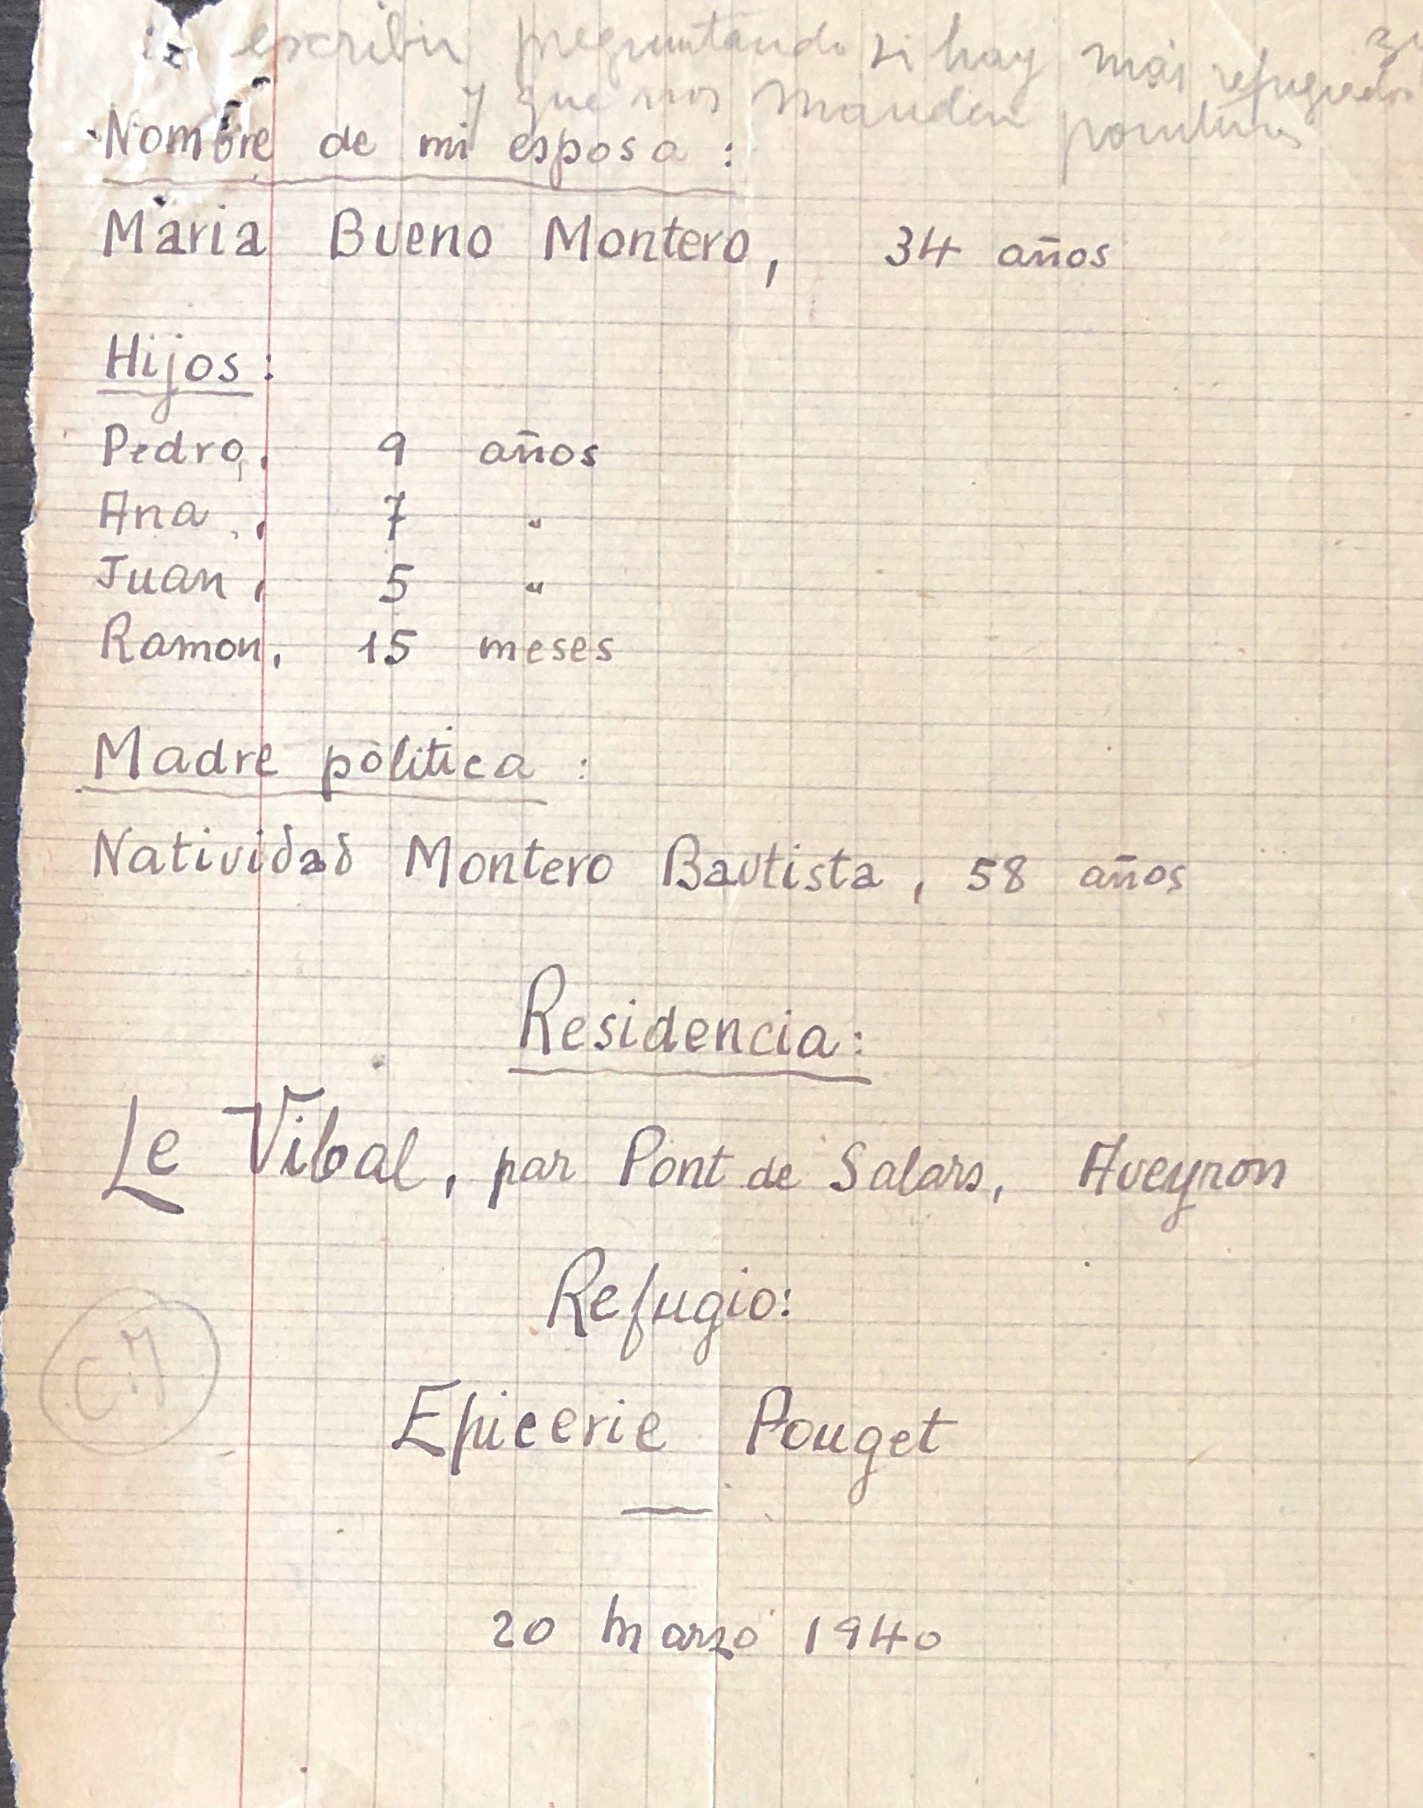 escribir preguntando si hay más refugiados
y que nos manden
Nombre de mi esposa :
Maria Bueno Montero, 34 años
Hijos :
Pedro, 9 años
Ana, 7 "
Juan, 5 "
Ramon, 15 meses
Madre politica :
Natividad Montero Bautista, 58 años
Residencia:
Le Vibal, par Pont de Salars, Aveyron
Refugio:
C.M
Epicerie Pouget
20 Marzo 1940